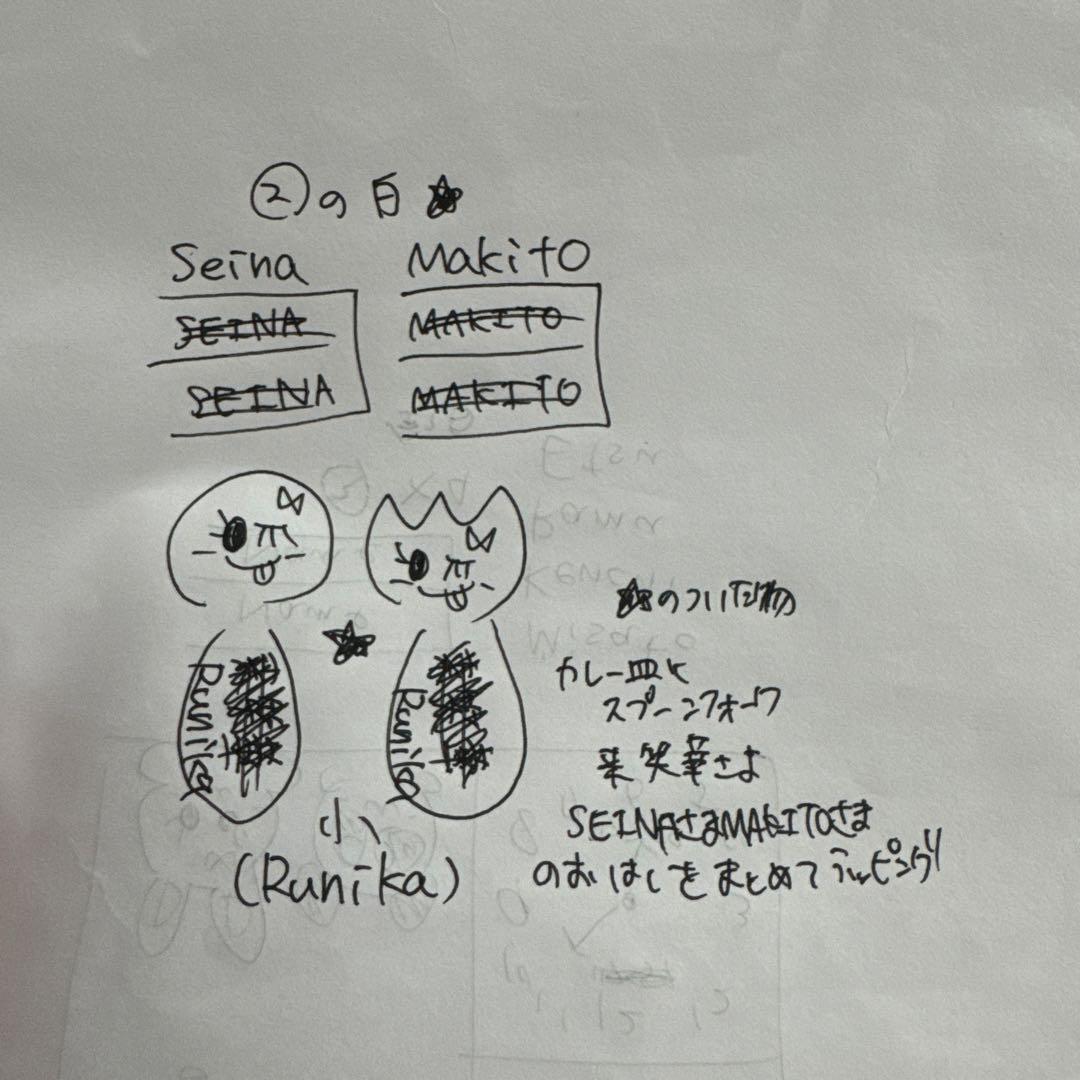 ②の白★
Seina Makito
SEINA MAKITO
SEINA MAKITO
★
Runika Runika
小
(Runika)
★のついた物
カレー皿と
スプーンフォーク
来笑華さま
SEINAさまMAKITOさま
のおはしをまとめてラッピング!